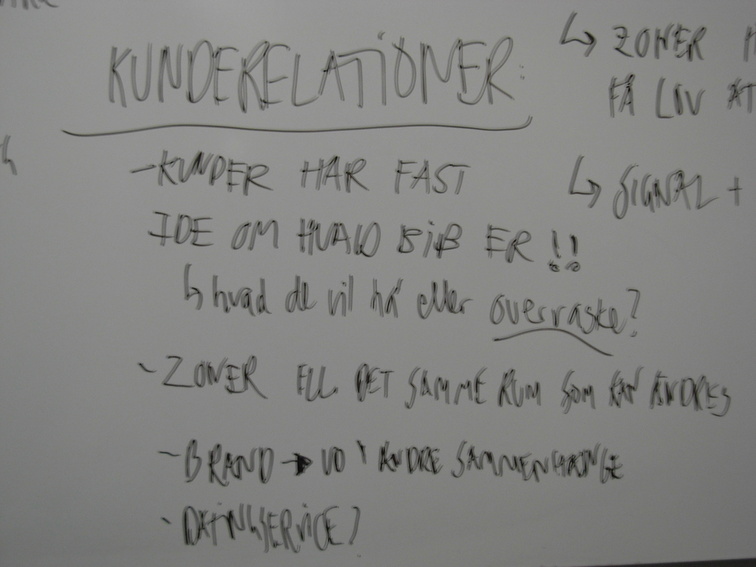 KUNDERELATIONER:
-KUNDER HAR FAST
IDE OM HVAD BIB ER !!
↳ hvad de vil ha eller overraske?
- ZONER ELL. DET SAMME RUM SOM KAN ÆNDRES
- BRAND → I ANDRE SAMMENHÆNGE
- DATINGSERVICE?
↳ ZONER
FÅ LIV AT
↳ SIGNAL +